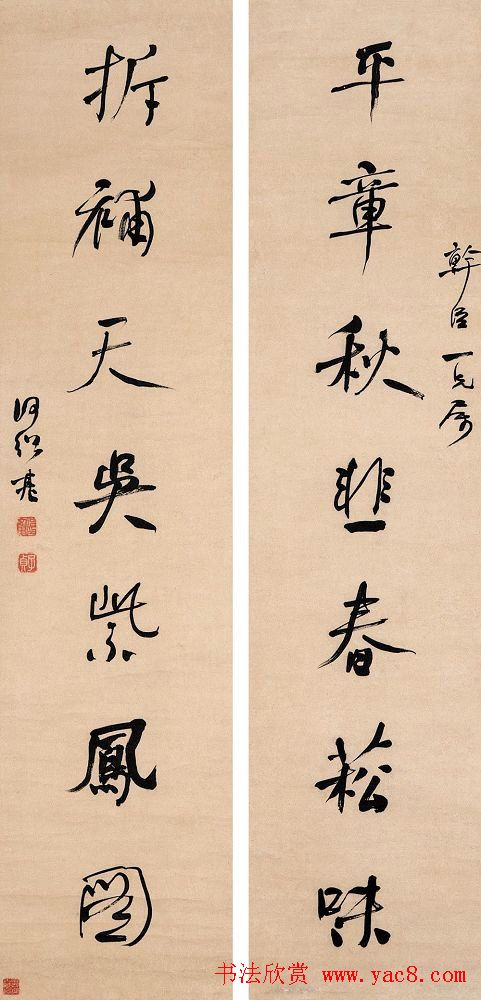 幹臣一兄属
平章秋韭春菘味
拆補天吳紫鳳圖
何紹基
书法欣赏 www.yac8.com